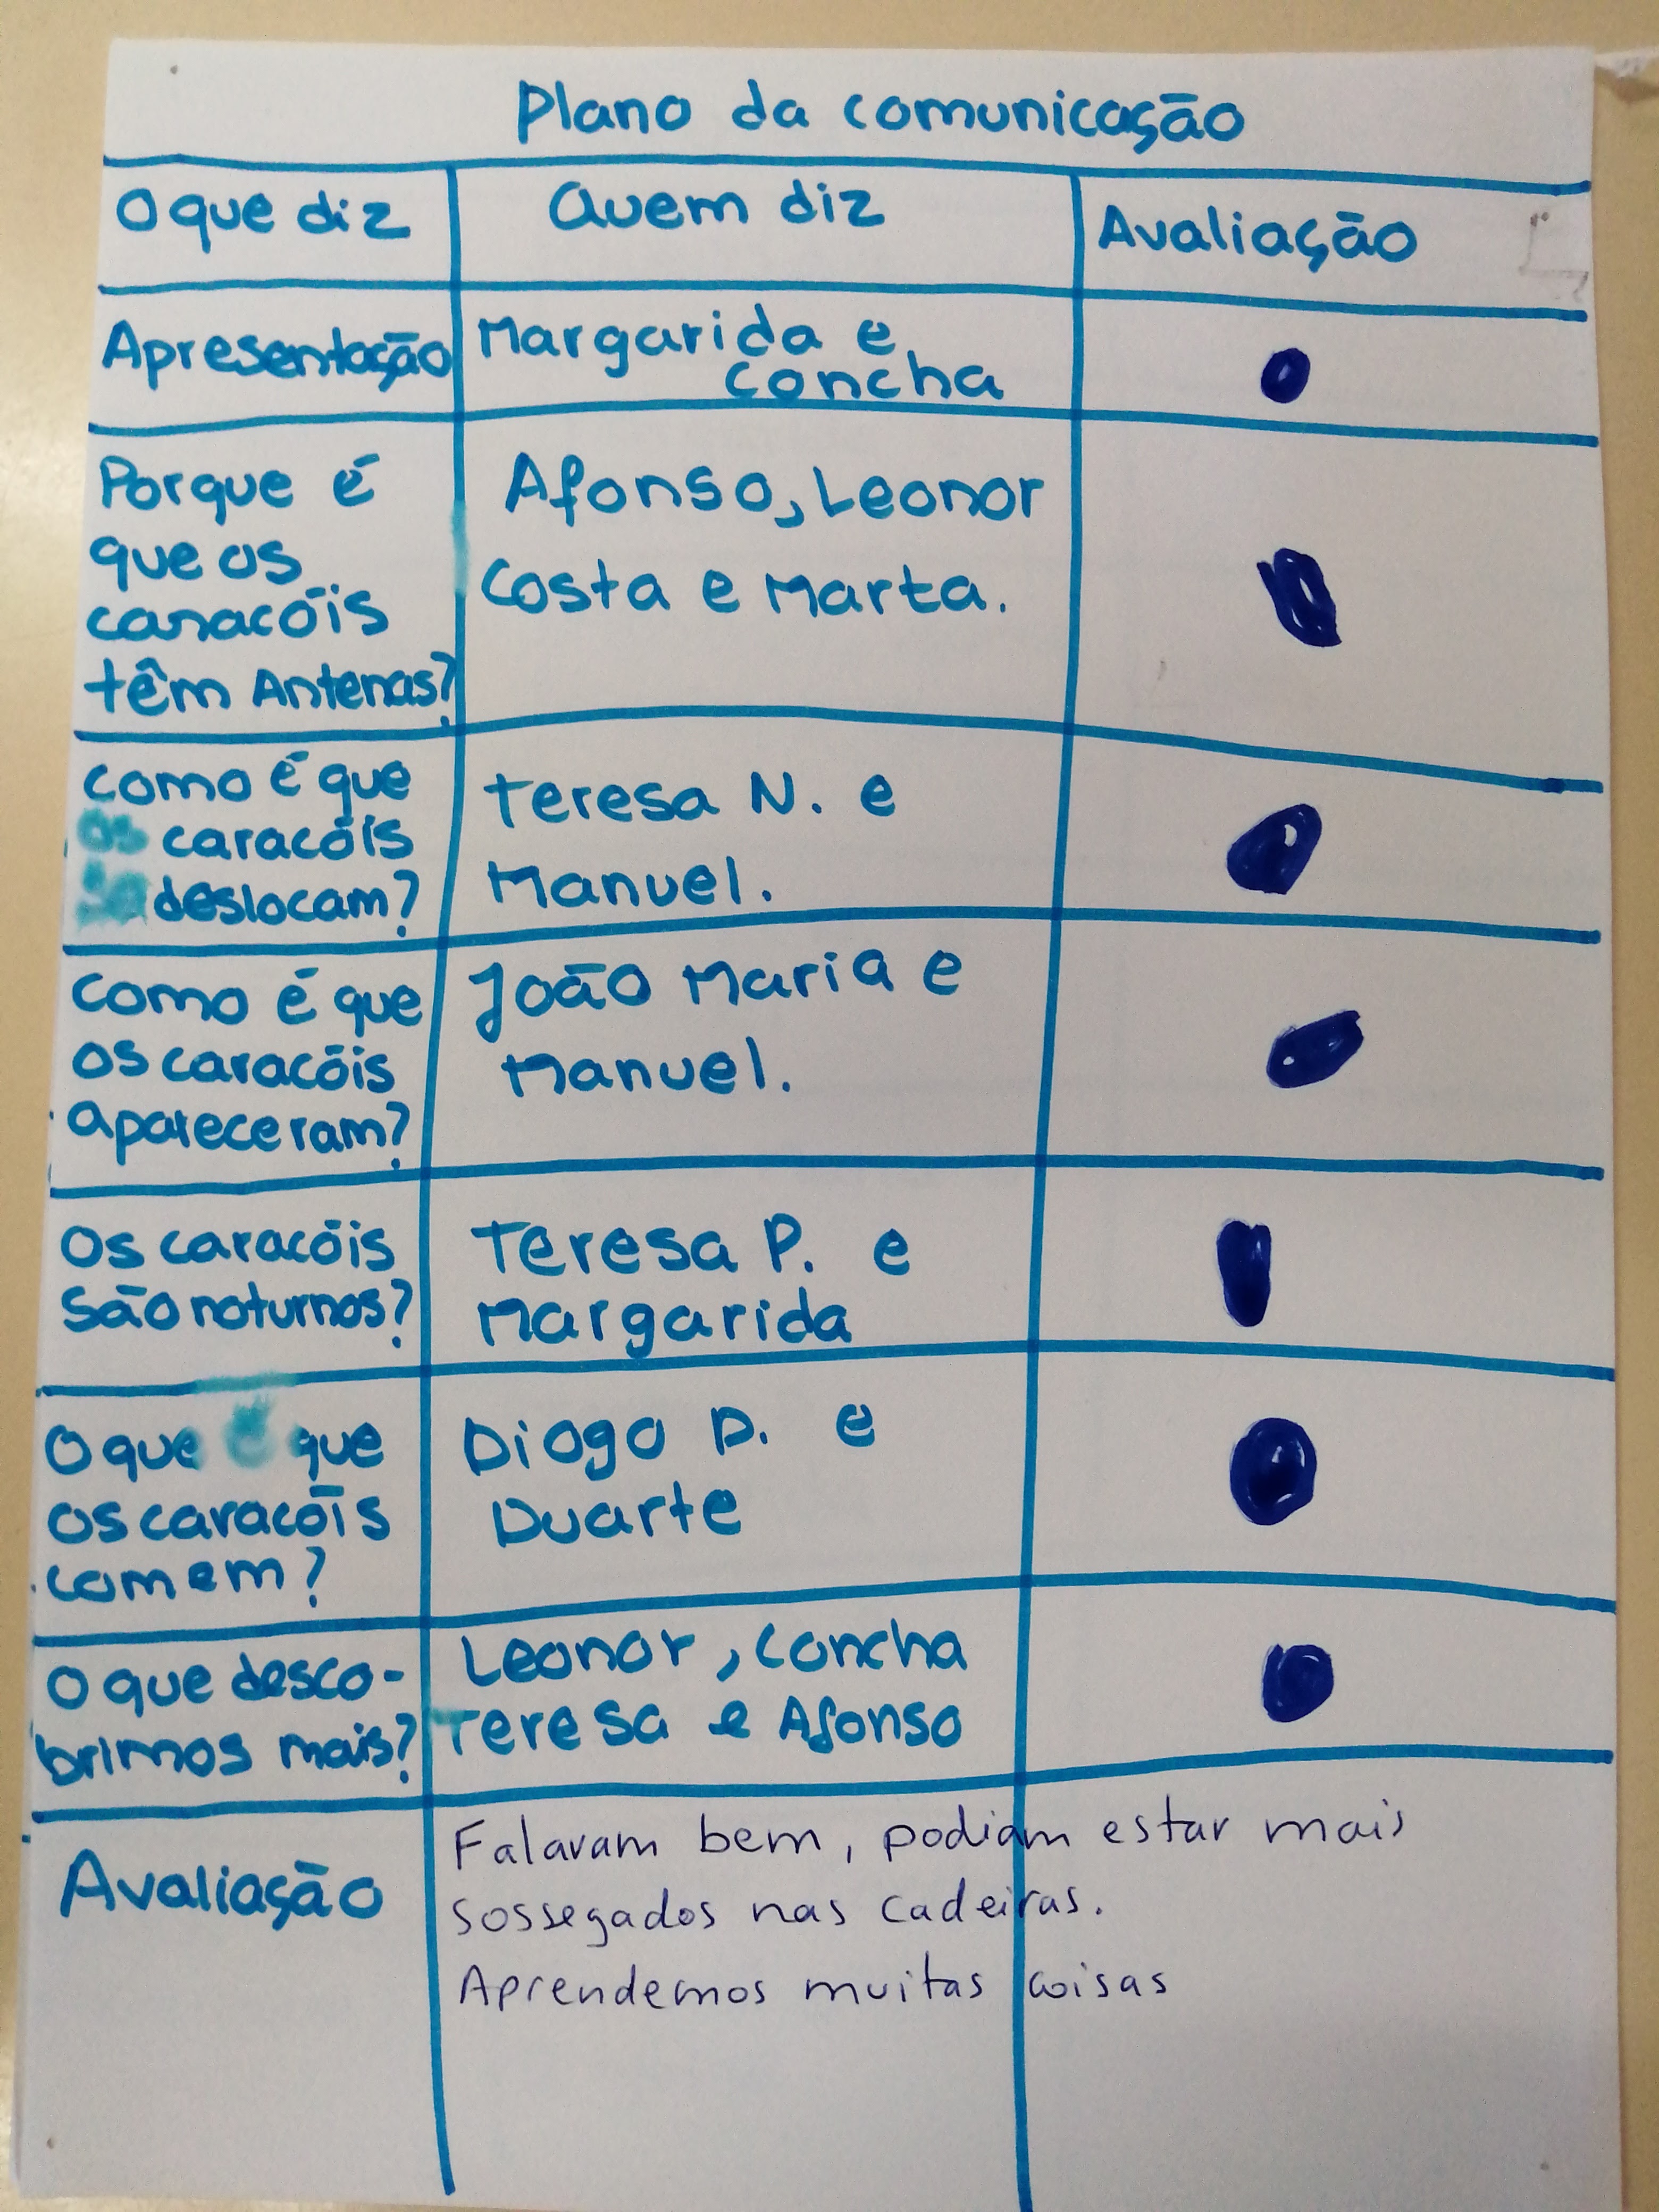 Plano da comunicação
O que diz
Quem diz
Avaliação
Apresentação
Margarida e
Concha
Porque é
que os
caracóis
têm Antenas?
Afonso, Leonor
Costa e Marta.
Como é que
os caracóis
se deslocam?
Teresa N. e
Manuel.
Como é que
os caracóis
apareceram?
João Maria e
Manuel.
Os caracóis
são noturnos?
Teresa P. e
Margarida
O que é que
os caracóis
comem?
Diogo D. e
Duarte
O que desco-
brimos mais?
Leonor, Concha
Teresa e Afonso
Avaliação
Falaram bem, podiam estar mais
sossegados nas cadeiras.
Aprendemos muitas coisas